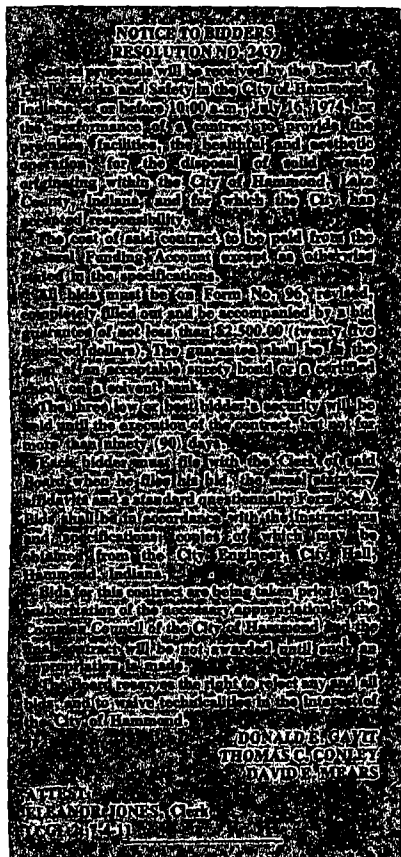 NOTICE TO BIDDERS
RESOLUTION NO. 2437
Sealed proposals will be received by the Board of
Public Works and Safety in the City of Hammond,
Indiana, at or before 10:00 a.m., July 16, 1974, for
the performance of a contract to provide the
premises, facilities, the healthful and aesthetic
operation, for the disposal of solid waste
originating within the City of Hammond, Lake
County, Indiana and for which the City has
responsibility.
The cost of said contract to be paid from the
Funding Account except as otherwise
in the specifications.
All bids must be on Form No. 96 revised,
completely filled out and be accompanied by a bid
guarantee of not less than $2,500.00 (twenty five
hundred dollars). The guarantee shall be in the
form of an acceptable surety bond or a certified
on a solvent bank.
The three low or best bidder's security will be
held until the execution of the contract, but not for
more than ninety (90) days.
Each bidder must file with the Clerk of said
Board when he files his bid, the usual statutory
affidavits and a standard questionnaire Form
Bids shall be in accordance with the instructions
and specifications, copies of which may be
obtained from the City Engineer, City Hall,
Hammond, Indiana.
Bids for this contract are being taken prior to the
authorization of the necessary appropriation by the
Common Council of the City of Hammond
contract will be not awarded until such an
appropriation is made.
The Board reserves the right to reject any and all
bids, and to waive technicalities in the interest of
the City of Hammond.
DONALD E. GAVIT
THOMAS C. CONLEY
DAVID E. MEARS
ATTEST:
ELEANOR JONES, Clerk